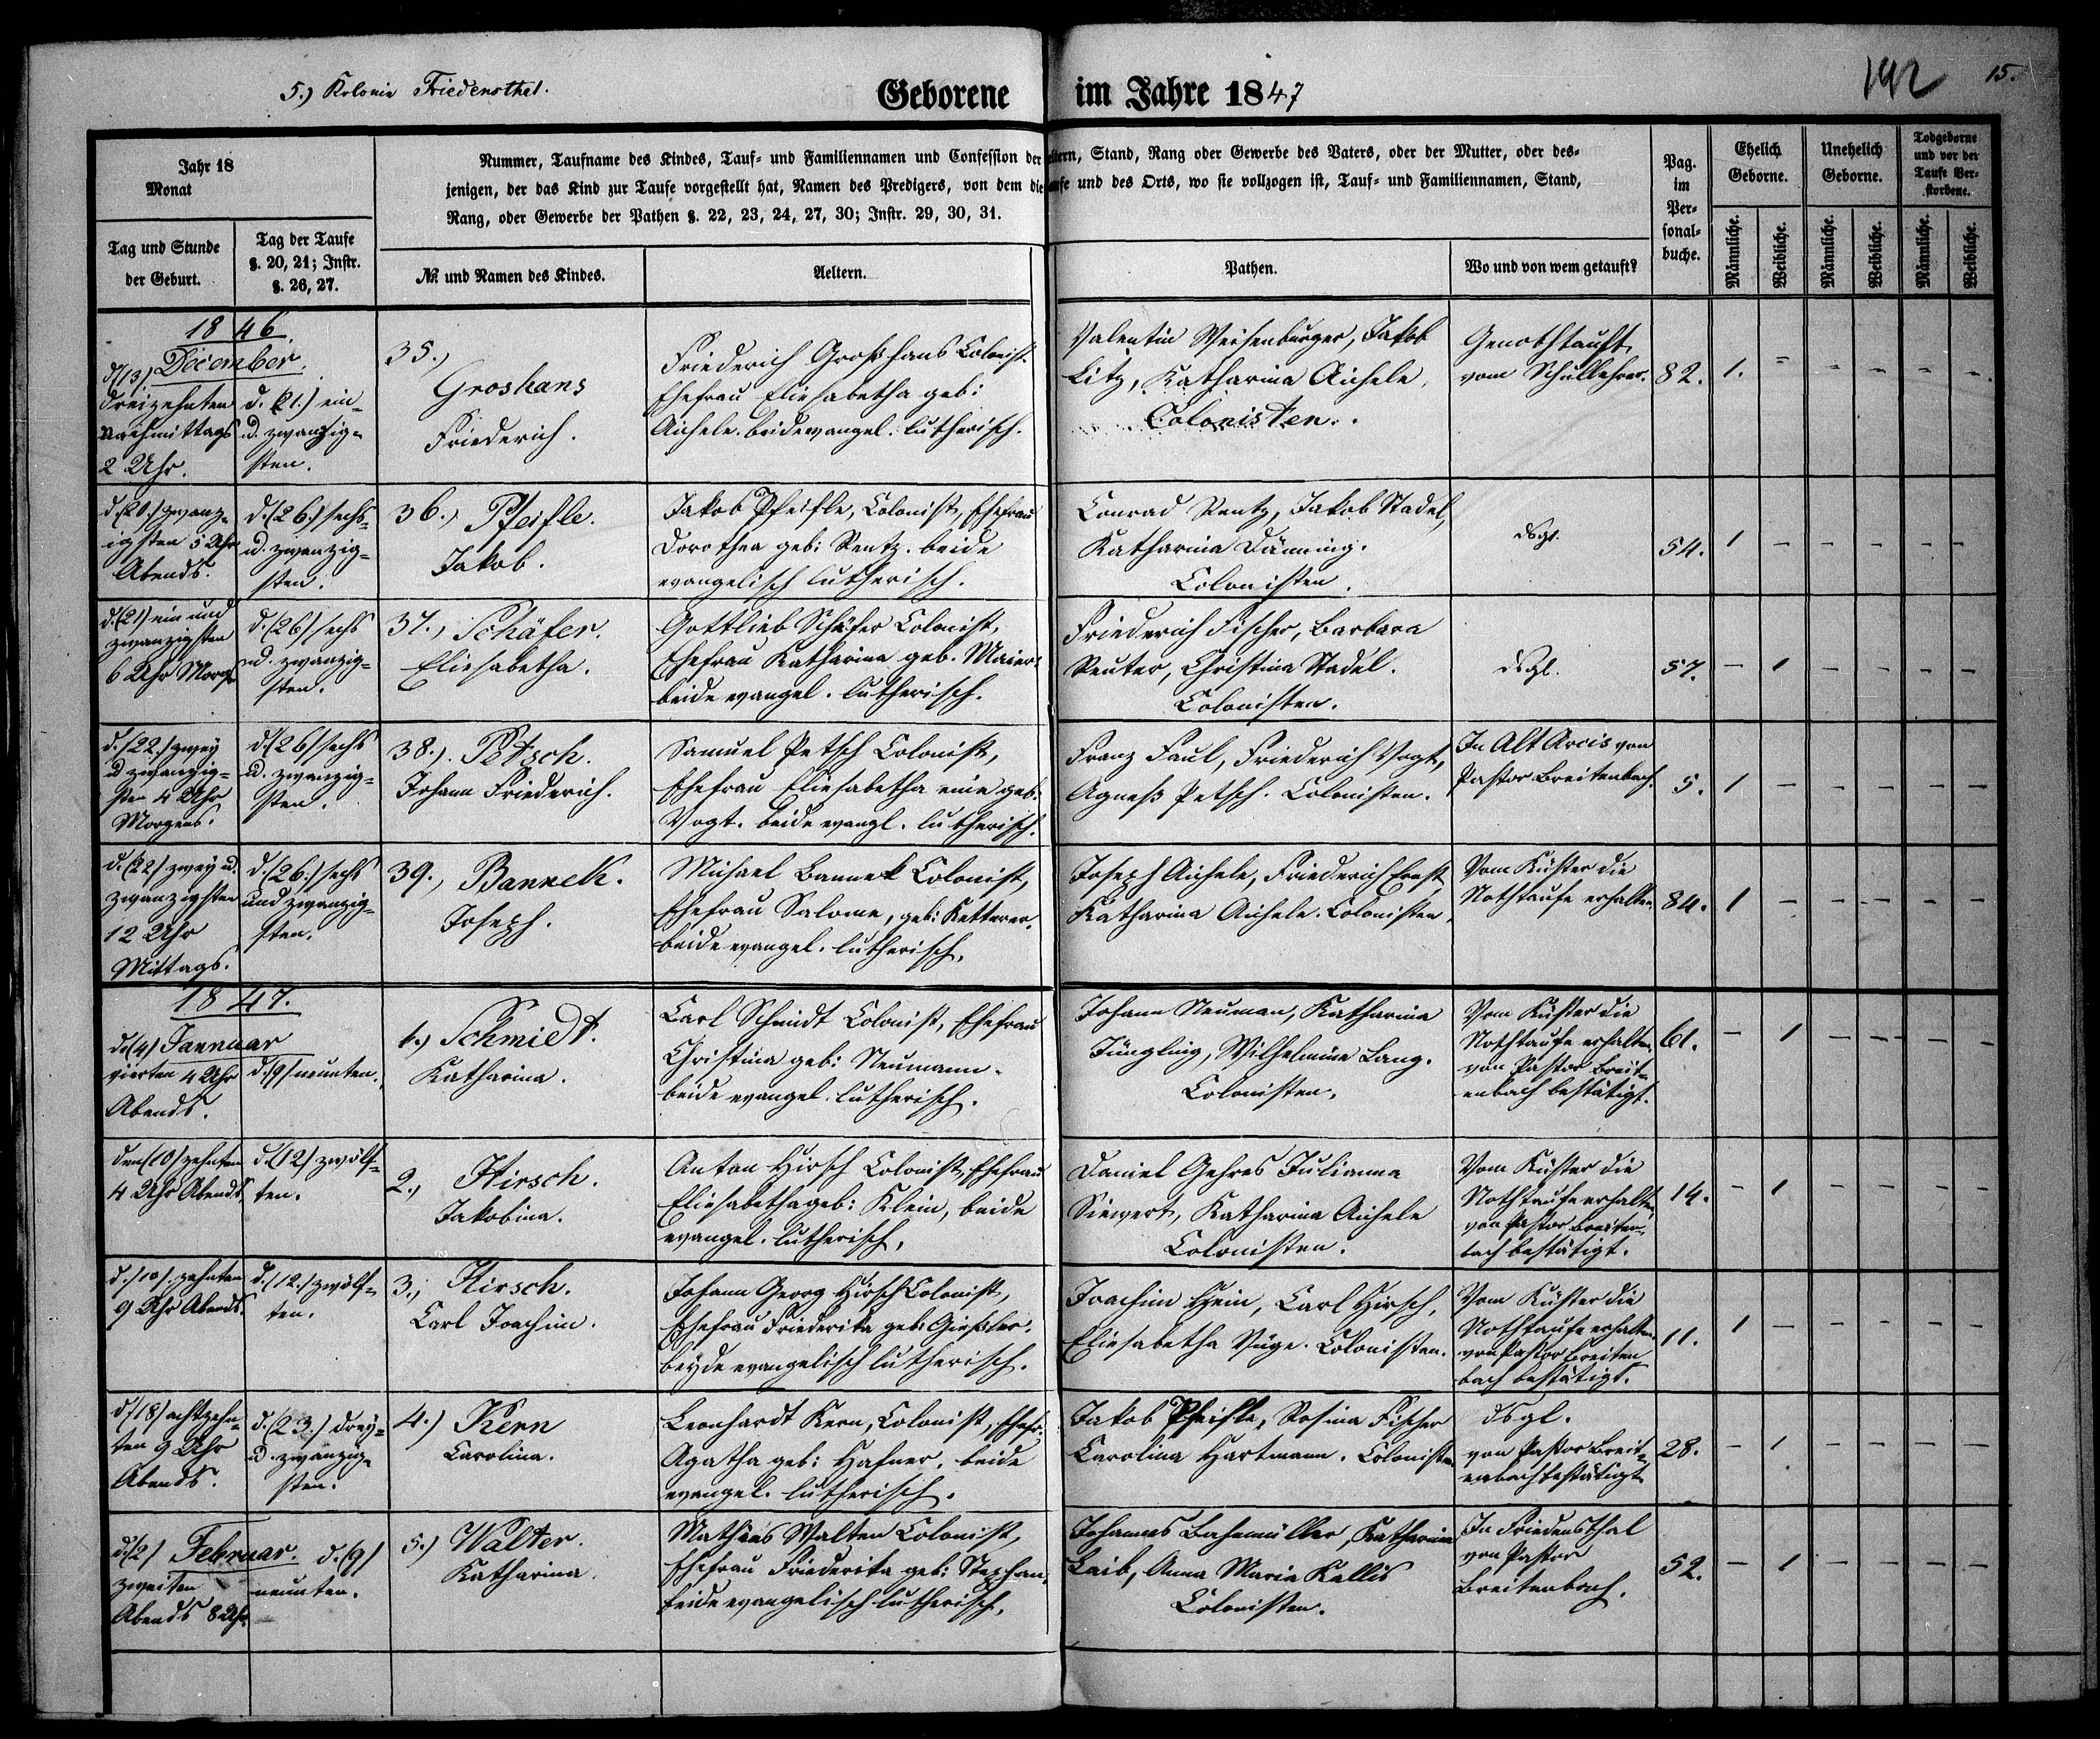 5.) Kolonie Friedensthal.
Geborene im Jahre 1847
192
15.
Jahr 18
Monat
Tag und Stunde
der Geburt.
Tag der Taufe
§. 20, 21; Instr.
§. 26, 27.
Nummer, Taufname des Kindes, Tauf- und Familiennamen und Confession der Aeltern, Stand, Rang oder Gewerbe des Vaters, oder der Mutter, oder des-
jenigen, der das Kind zur Taufe vorgestellt hat, Namen des Predigers, von dem die Taufe und des Orts, wo sie vollzogen ist, Tauf- und Familiennamen, Stand,
Rang, oder Gewerbe der Pathen §. 22, 23, 24, 27, 30; Instr. 29, 30, 31.
№ und Namen des Kindes.
Aeltern.
Pathen.
Wo und von wem getauft?
Pag.
im
Per-
sonal-
buche.
Ehelich
Geborne.
Unehelich
Geborne.
Todgeborne
und vor der
Taufe Ver-
storbene.
Männliche.
Weibliche.
Männliche.
Weibliche.
Männliche.
Weibliche.
1846.
December.
d. (13)
dreizehnten
Nachmittags
2 Uhr.
d. (21.) ein-
u. zwanzig-
sten.
35.,
Groshans
Friederich.
Friederich Großhans Colonist
Ehefrau Eliesabetha geb:
Aichele. beide evangel. lutherisch.
Valentin Weisenburger, Jakob
Litz, Katharina Aichele,
Colonisten.
Genothtauft
vom Schullehrer.
82. 1. - - - - -
d. (20.) zwanz-
igsten 5 Uhr
Abends.
d. (26.) sechs-
u. zwanzig-
sten.
36., Pfeifle.
Jakob.
Jakob Pfeifle, Colonist, Ehefrau
Dorothea geb: Rentz. beide
evangelisch lutherisch.
Conrad Rentz, Jakob Stadel,
Katharina Dänning.
Colonisten.
dsgl.
54. 1 - - - - -
d. (21) ein und
zwanzigsten
6 Uhr Morgs
d. (26) sechs
ud. zwanzig-
sten.
37., Schäfer.
Eliesabetha.
Gottlieb Schäfer Colonist,
Ehefrau Katharina geb. Maier.
beide evangel. lutherisch.
Friederich Fischer, Barbara
Reuter, Christina Stadel.
Colonisten.
dsgl.
57. - 1 - - - -
d. (22.) zwey
ud zwanzig-
sten 4 Uhr
Morgens.
d. (26) sechs
ud. zwanzig-
sten.
38.). Petsch.
Johann Friederich.
Samuel Petsch Colonist,
Ehefrau Eliesabetha eine geb.
Vogt. beide evangl. lutherisch.
Franz Faul, Friederich Vogt,
Agneß Petsch. Colonisten.
In Alt Arcis von
Pastor Breitenbach.
5. 1 - - - - -
d. (22) zwey ud.
zwanzigsten
12 Uhr
Mittags.
d. (26.) sechs
und zwanzig-
sten.
39., Bannek.
Joseph.
Michael Bannek Colonist,
Ehefrau Salome, geb: Ketterer.
beide evangel. lutherisch.
Joseph Aichele, Friederich Ernst,
Katharina Aichele. Colonisten,
Vom Küster die
Nothtaufe erhalten.
84. 1 - - - - -
1847.
Jannuar
d. (4)
vierten 4 Uhr
Abends.
d. (9) neunten.
1.) Schmidt.
Katharina.
Carl Schmidt Colonist, Ehefrau
Christina geb: Neumann.
beide evangel. lutherisch.
Johann Neuman, Katharina
Jüngling, Wilhelmina Lang.
Colonisten.
Vom Küster die
Nothtaufe erhalten.
von Pastor Breit-
enbach bestätigt.
61. - 1 - - - -
den (10) zehnten
4 Uhr Abends
d. (12) zwölf-
ten.
2., Hirsch.
Jakobina.
Anton Hirsch Colonist, Ehefrau
Eliesabetha geb: Klein, beide
evangel. lutherisch.
Daniel Gehres Julianna
Siewert, Katharina Aichele
Colonisten.
Vom Küster die
Nothtaufe erhalten,
von Pastor Breiten-
bach bestätigt.
14. - 1 - - - -
d. (10). zehnten
9 Uhr Abends.
d. (12.) zwölf-
ten.
3., Hirsch.
Carl Joachim.
Johann Georg Hirsch Colonist,
Ehefrau Friederika geb:
beyde evangelisch lutherisch.
Joachim Hein, Carl Hirsch,
Eliesabetha Colonisten.
Vom Küster die
Nothtaufe erhalten.
von Pastor Breiten
bach bestätigt.
11. 1 - - - - -
d. (18) achtzehn-
ten 9 Uhr
Abends.
d. (23.) drey-
u. zwanzig-
sten.
4.) Kern
Carolina.
Leonhardt Kern, Colonist, Ehefr.
Agatha geb: Hafner. beide
evangel. lutherisch.
Jakob Pfeifle, Rosina Fischer
Carolina Hartmann. Colonisten
dsgl.
von Pastor Breit-
enbach bestätigt
28. - 1 - - - -
Februar.
d. (2)
zweiten
Abends 8 Uhr.
d. (9)
neunten.
5.) Walter.
Katharina.
Mathias Walter Colonist,
Ehefrau Friederika geb: Stephan,
beide evangelisch lutherisch.
Johannes Bahnmüller, Katharina
Laib, Anna Maria Kallis
Colonisten.
In Friedensthal
von Pastor
Breitenbach.
52. - 1 - - - -